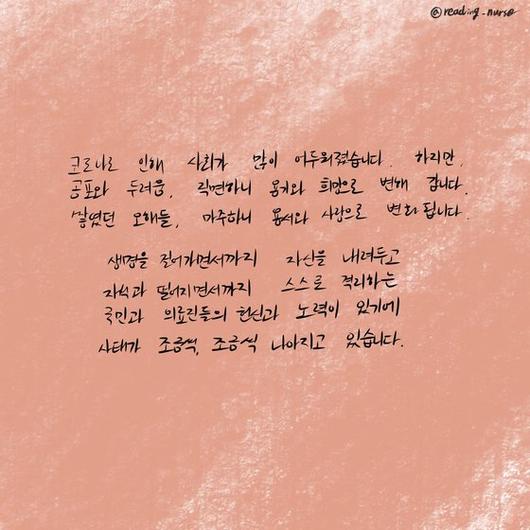 @reading_nurse
코로나로 인해 사회가 많이 어두워졌습니다. 하지만,
공포와 두려움, 직면하니 용기와 희망으로 변해 갑니다.
쌓였던 오해들, 마주하니 용서와 사랑으로 변화됩니다.
생명을 짊어가면서까지 자신을 내려두고
자식과 떨어지면서까지 스스로 격리하는
국민과 의료진들의 헌신과 노력이 있기에
사태가 조금씩, 조금씩 나아지고 있습니다.